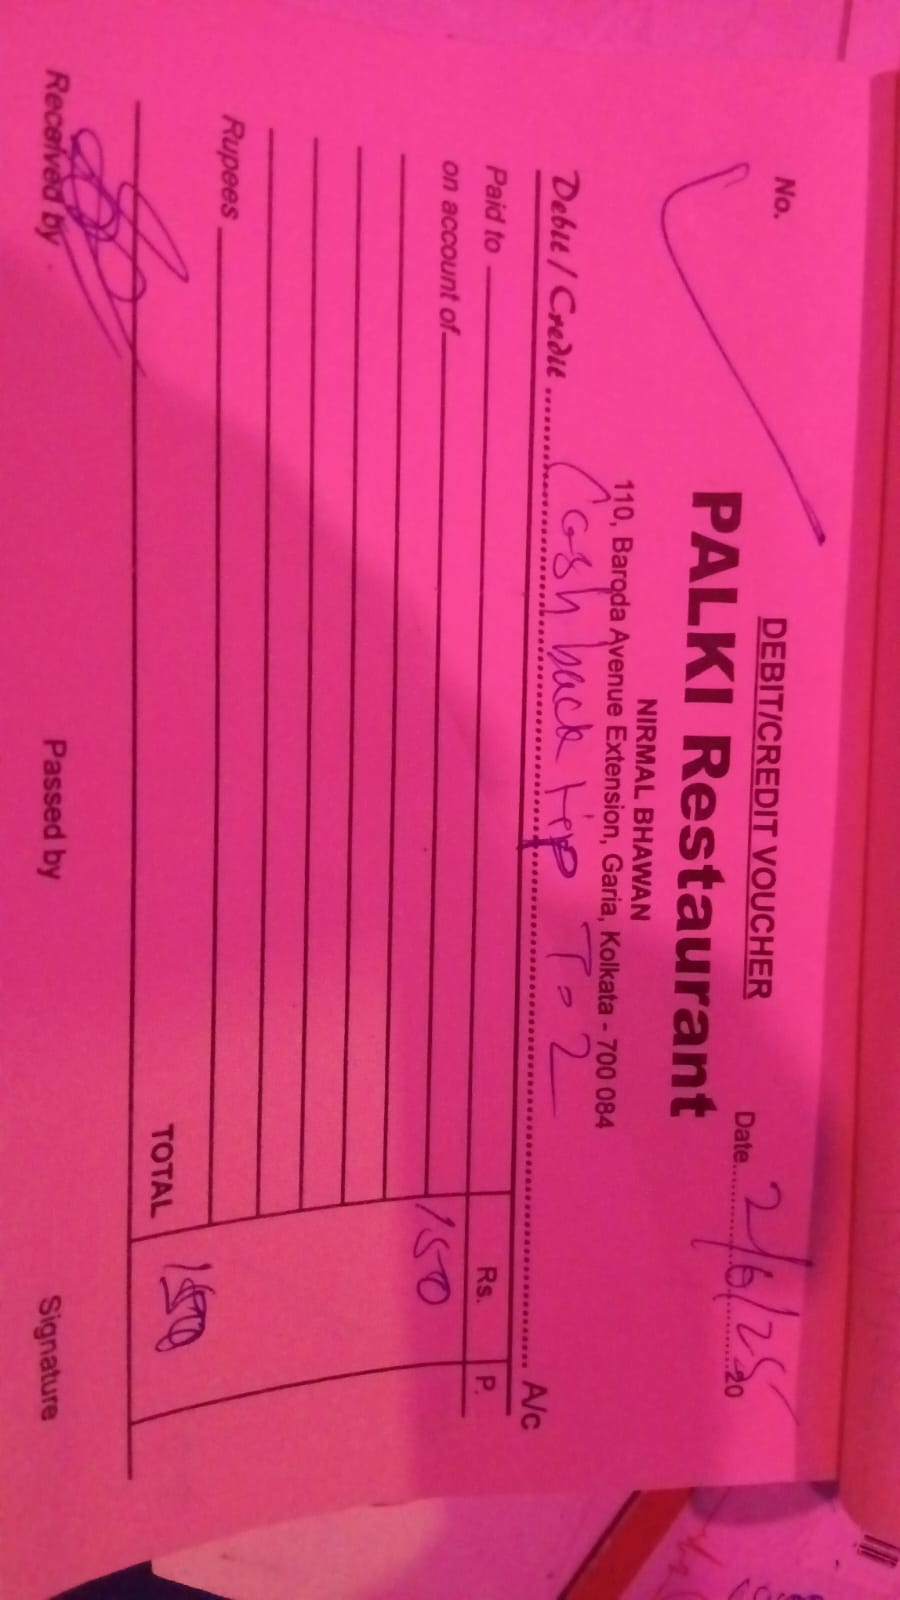 DEBIT/CREDIT VOUCHER
No.
Date 2/6/25 20
PALKI Restaurant
NIRMAL BHAWAN
110, Baroda Avenue Extension, Garia, Kolkata - 700 084
Debit / Credit Cash back tip T-2 A/c
Paid to Rs. P.
on account of 150
Rupees
TOTAL 150
Received by Passed by Signature